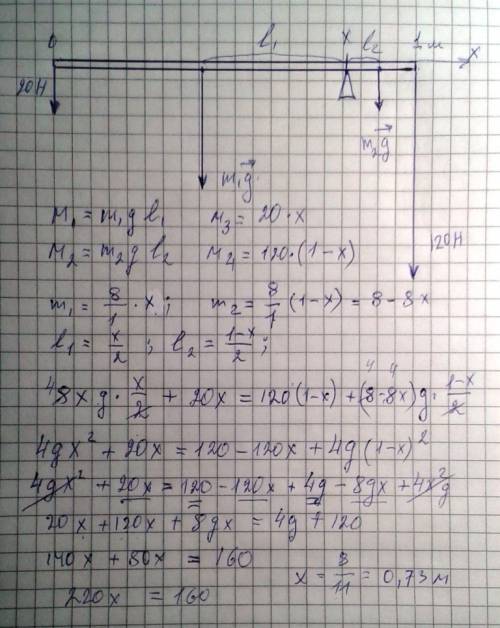 0 l₁ x l₂ 1 м x
20Н
m₂g⃗
m₁g⃗
120Н
M₁ = m₁g l₁ M₃ = 20·x
M₂ = m₂g l₂ M₄ = 120·(1-x)
m₁ = 8/1 · x; m₂ = 8/1 (1-x) = 8-8x
l₁ = x/2 ; l₂ = (1-x)/2 ;
4 8x g · x/2 + 20x = 120(1-x) + (8-8x)g · (1-x)/2
4gx² + 20x = 120 - 120x + 4g(1-x)²
4gx² + 20x = 120 - 120x + 4g - 8gx + 4x²g
20x + 120x + 8gx = 4g + 120
140x + 80x = 160
220x = 160 x = 8/11 = 0,73 м